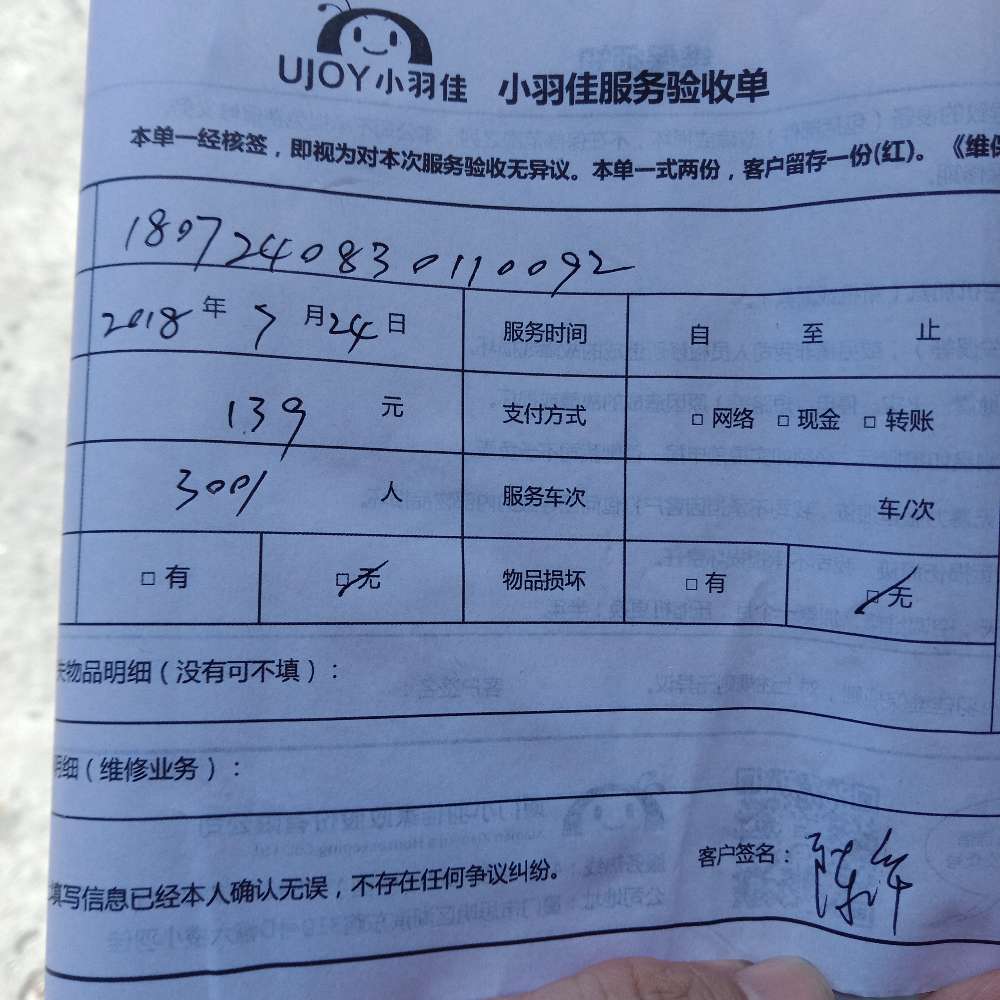 UJOY小羽佳 小羽佳服务验收单
本单一经核签，即视为对本次服务验收无异议。本单一式两份，客户留存一份(红)。《维保
1807240830110092
2018年7月24日 服务时间 自 至 止
139 元 支付方式 □ 网络 □ 现金 □ 转账
3001 人 服务车次 车/次
□ 有 □ 无 物品损坏 □ 有 □ 无
失物品明细（没有可不填）：
明细（维修业务）：
填写信息已经本人确认无误，不存在任何争议纠纷。 客户签名：